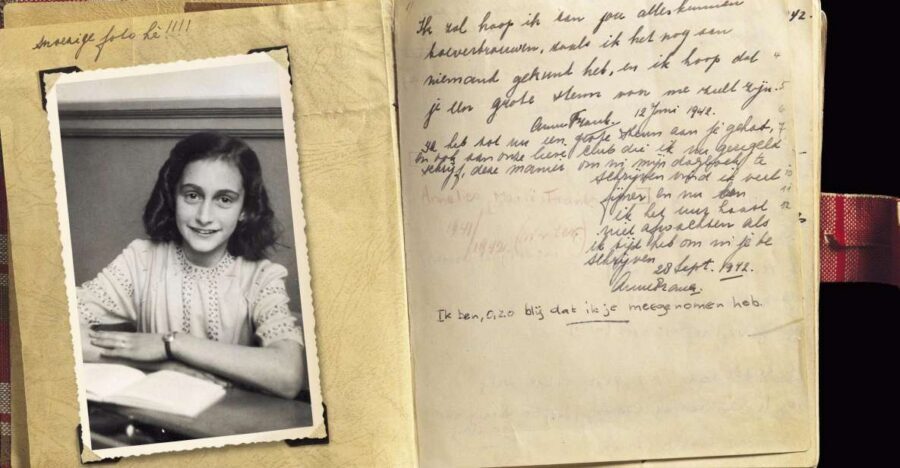 snoezige foto hè !!!!
42.
Ik zal hoop ik aan jou alles kunnen
toevertrouwen, zoals ik het nog aan
niemand gekund heb, en ik hoop dat
je een grote steun voor me zult zijn. 5
Anne Frank. 12 Juni 1942. 6
Ik heb tot nu een grote steun aan je gehad, 7
en ook aan onze lieve club die ik nu geregeld
schrijf, deze manier om in mijn dagboek te
schrijven vind ik veel 10
fijner en nu kan 11
ik het uur haast 12
niet afwachten als
ik tijd heb om in je te
schrijven
28 Sept. 1942.
Anne Frank.
Ik ben, o, zo blij dat ik je meegenomen heb.